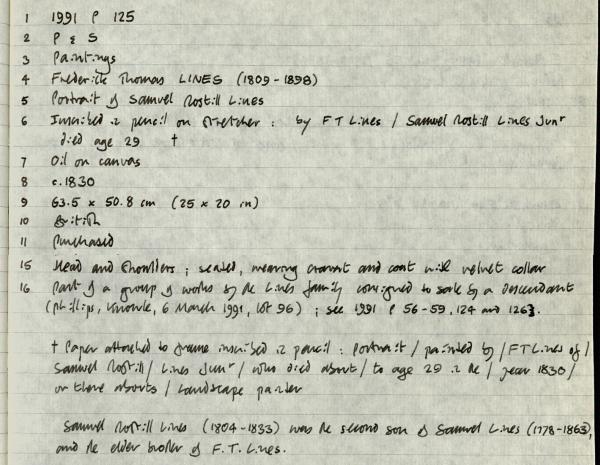 1 1991 P 125
2 P & S
3 Paintings
4 Frederick Thomas LINES (1809-1898)
5 Portrait of Samuel Rostill Lines
6 Inscribed in pencil on stretcher : by F T Lines / Samuel Rostill Lines Junr
died age 29 †
7 Oil on canvas
8 c.1830
9 63.5 x 50.8 cm (25 x 20 in)
10 British
11 Purchased
15 Head and shoulders ; seated, wearing cravat and coat with velvet collar
16 Part of a group of works by the Lines family consigned to sale by a descendant
(Phillips, Knowle, 6 March 1991, lot 96) ; see 1991 P 56-59, 124 and 126.
† Paper attached to frame inscribed in pencil : Portrait / painted by / F T Lines of /
Samuel Rostill / Lines Junr / who died about / to age 29 in the / year 1830 /
or there abouts / Landscape painter
Samuel Rostill Lines (1804-1833) was the second son of Samuel Lines (1778-1863),
and the elder brother of F.T. Lines.